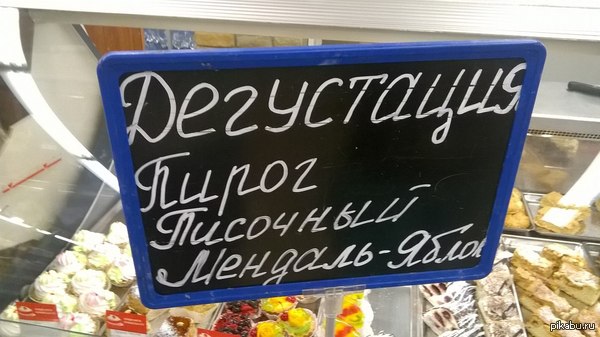 Дегустация
Пирог
Писочный
Мендаль-Яблок
pikabu.ru